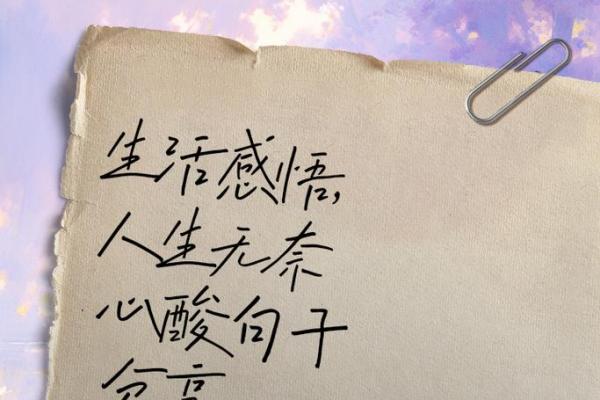 生活感悟,
人生无奈
心酸句子
分享